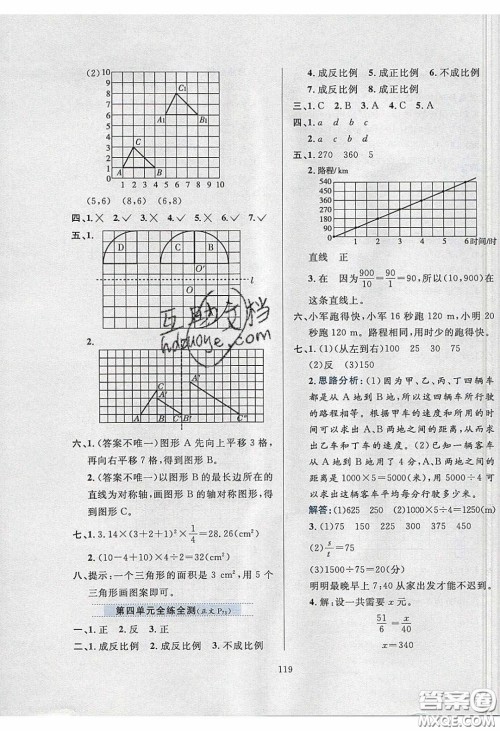 (2)
10
9
8
7
6
5
4
3
2
1
0 1 2 3 4 5 6 7 8 9 10
C₁
A₁ B₁
C
A B
(5,6) (6,6) (6,8)
四、1.× 2.✓ 3.× 4.✓ 5.✓ 6.✓
五、1.
D B
O′
O
l
2.
C
A′
A B
B″ C″
六、1.(答案不唯一)图形 A 先向上平移 3 格,
再向右平移 7 格,得到图形 B。
2.(答案不唯一)以图形 B 的最长边所在的
直线为对称轴,画图形 B 的轴对称图形,得
到图形 C。
七、1. 3.14×(3+2+1)²×1/4=28.26(cm²)
2.(10-4+10)×4÷2=32(cm²)
八、提示:一个三角形的面积是 3 cm²,用 5 个
三角形画图案即可。
第四单元全练全测(正文 P₇₁)
一、1. 正 2. 反 3. 正
二、1. 成反比例 2. 成反比例 3. 不成比例
4. 成反比例 5. 成正比例 6. 不成比例
7. 成反比例 8. 成反比例
三、1. C 2. B 3. A 4. C 5. A
四、1. a d b c
2. a c b d
五、1. 270 360 5
2. 路程/km
540
480
420
360
300
240
180
120
60
0 1 2 3 4 5 6 时间/时
直线 正
3. 在 因为900/10=90/1=90,所以(10,900)在
这条直线上。
六、小军跑得快,小军 16 秒跑 120 m,小明 20
秒跑 120 m。路程相同,用时少的跑得快。
七、1.(从左到右)100 25 30 75
(2)反 (3)150
2. 思路分析:(1)因为甲、乙、丁四辆车
都是从 A 地到 B 地,所以这四辆车所行
的路程相同。根据甲车的速度和所用的
时间,可以求出 A、B 两地之间的距离,从而
求出乙车和丁车的速度。(2)已知一辆客车
从 A 地到 B 地用了 4 分,A、B 两地之间的
距离是 1000×5=5000(m),用 5000÷4 可以
求出这辆客车平均每分行驶多少米。
解答:(1)625 250 (2)1000×5÷4=1250(m)
3.(1)75 150 225 300 375
(2)s/t=75
(3)1500÷75=20(分)
明明最晚早上 7:40 从家出发才能不迟到。
4. 解:设一共需要 x 元。
51/6=x/40
x=340
119
互助文档
hdzuoye.com
答案圈
MXQE.COM